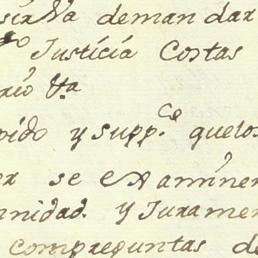 sirva demandar
to Justicia Costas
rio Va
pido y supp.ce quelos
se examinen
nidad. y Juramen
compreguntas de